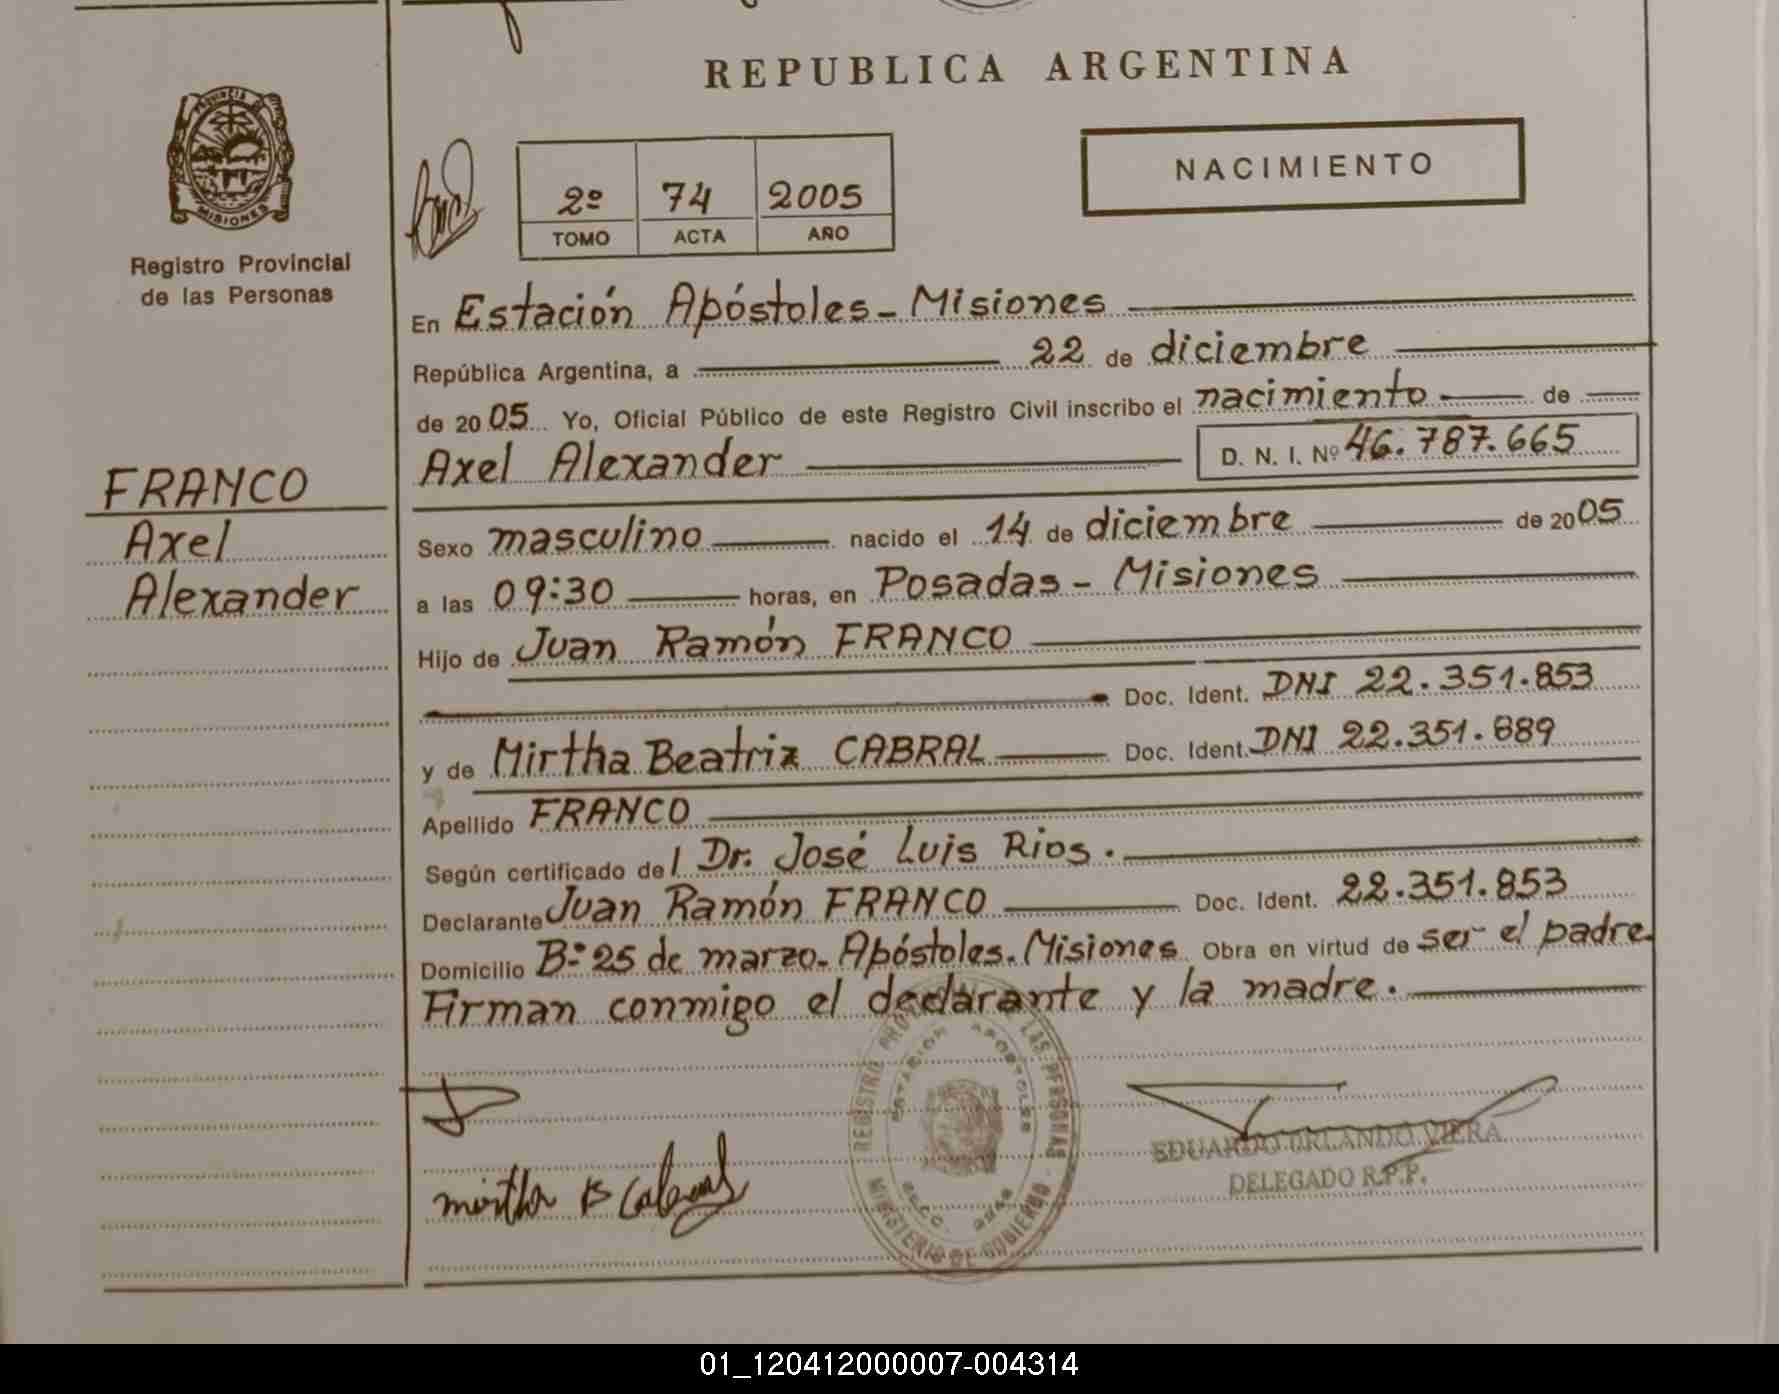 REPUBLICA ARGENTINA
PROVINCIA DE
MISIONES
Registro Provincial
de las Personas
2º 74 2005
TOMO ACTA AÑO
NACIMIENTO
En Estación Apóstoles - Misiones
República Argentina, a 22 de diciembre
de 2005 Yo, Oficial Público de este Registro Civil inscribo el nacimiento de
Axel Alexander D. N. I. Nº 46.787.665
FRANCO
Axel
Alexander
Sexo masculino nacido el 14 de diciembre de 2005
a las 09:30 horas, en Posadas - Misiones
Hijo de Juan Ramón FRANCO
Doc. Ident. DNI 22.351.853
y de Mirtha Beatriz CABRAL Doc. Ident. DNI 22.351.889
Apellido FRANCO
Según certificado del Dr. José Luis Rios.
Declarante Juan Ramón FRANCO Doc. Ident. 22.351.853
Domicilio Bº 25 de marzo - Apóstoles. Misiones Obra en virtud de ser el padre.
Firman conmigo el declarante y la madre.
REGISTRO PROVINCIAL DE LAS PERSONAS
ESTACION APOSTOLES
MINISTERIO DE GOBIERNO
mirtha B Cabral
EDUARDO ORLANDO VIERA
DELEGADO R.P.P.
01_120412000007-004314